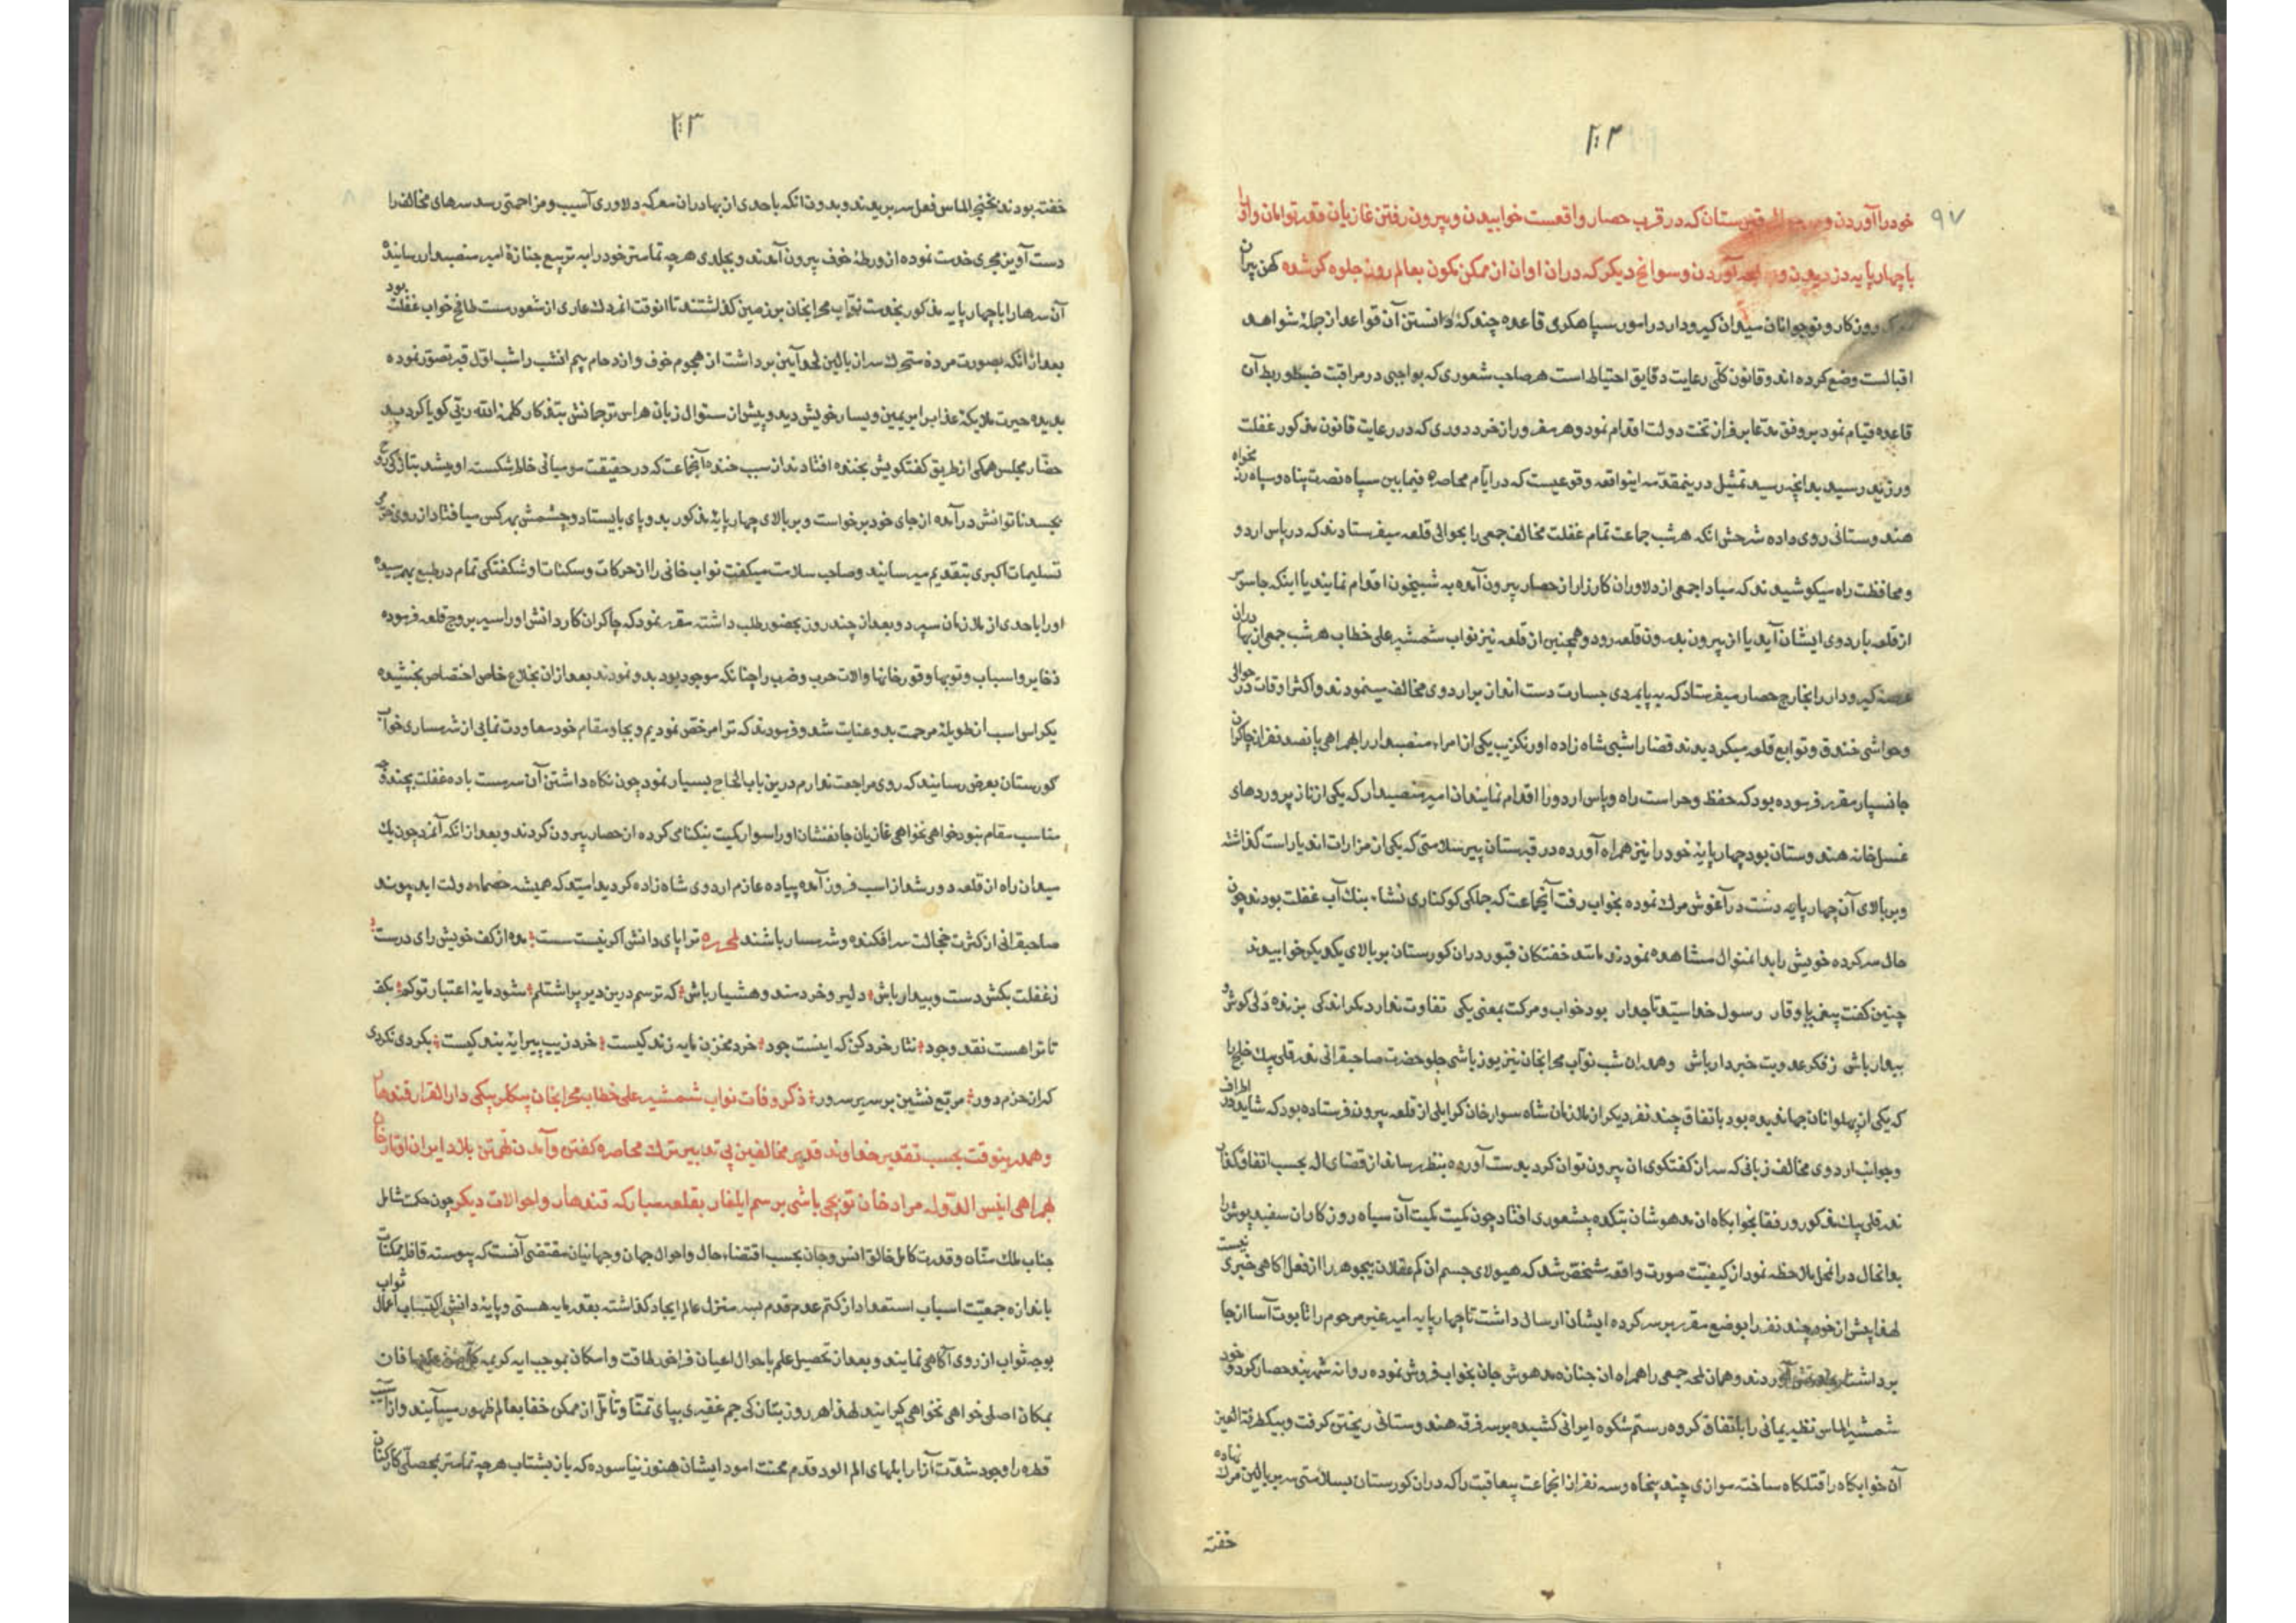 ۲۰۲
۹۷
خود را آوردن و در حوالی قبرستان که در قرب حصار واقعست خوابیدن و بیرون رفتن غازیان قلعه توامان و او را
با چهارپایه دزدیدن و آوردن و سوانح دیگر که در ان اوان از ممکن بکون بعالم بروز جلوه‌گر شده کهن پیران
روزکار و نوجوانان میدان کیر و دار در امور سپاهکری قاعده چند که دانستن آن قواعد از جملهٔ شواهد
اقبالست وضع کرده اند و قانون کلی رعایت دقایق احتیاط است هر صاحب شعوری که بواجبی در مراقبت ضبط و ربط آن
قاعده قیام نمود بر وفق مدعا بر فراز تخت دولت اقدام نمود و هر مغرور از خرد دوری که در رعایت قانون مذکور غفلت
ورزید رسید بدانچه رسید تمثیل درینمقدمه اینواقعه وقوعیست که در ایام محاصره فیمابین سپاه نصرت پناه و سپاه رزمخواه
هندوستانی روی داده شرحش انکه هر شب جماعت تمام غفلت مخالف جمعی را بحوالی قلعه میفرستادند که در پاس اردو
و محافظت راه میکوشیدند که مبادا جمعی از دلاوران کارزار از حصار بیرون آمده به شبیخون اقدام نمایند یا اینکه جاسوسی
از قلعه باردوی ایشان آید یا از بیرون بدرون قلعه رود و همچنین از قلعه نیز نواب شمشیر علی خطاب هر شب جمعی از بهادران
عرصه کیر و دار را بخارج حصار میفرستاد که به پایمردی جسارت دست انداز بر اردوی مخالف مینمودند و اکثر اوقات در حوالی
و حواشی خندق و توابع قلعه میکردیدند قضا را شبی شاه زاده اورنکزیب یکی از امراء منصبدار را بهمراهی پانصد نفر از چاکران
جانسپار مقرر فرموده بود که حفظ و حراست راه و پاس اردو را اقدام نمایند ان امیر منصبدار که یکی از ناز پروردهای
غسل خانه هندوستان بود چهارپایهٔ خود را نیز همراه آورده در قبرستان پیر سلامتی که یکی از مزارات اندیار است کذاشته
و بر بالای آن چهارپایه دست در آغوش مرک نموده بخواب رفت آنجماعت که جملکی کوکناری نشاء بنک آب غفلت بودند چون
حال سرکرده خویش را بدانمنوال مشاهده نمودند مانند خفتکان قبور در ان کورستان بر بالای یکدیکر خوابیدند
چنین کفت پیغمبر با وقار رسول خدا سید تاجدار بود خواب و مرکت بمعنی یکی تفاوت ندارد مکر اندکی بزنده دلی کوش و
بیدار باش ز فکر عدویت خبردار باش و همدران شب نواب محرابخان نیز یوزباشی جلو حضرت صاحبقرانی ندر قلی بیک خلج را
که یکی از پهلوانان جهاندیده بود باتفاق چند نفر دیکر از ملازمان شاه سوار خان کرایلی از قلعه بیرون فرستاده بود که شاید از اطراف
و جوانب اردوی مخالف زبانی که سر از کفتکوی ان بیرون توان کرد بدست آورده بنظر رساند از قضای اله بحسب اتفاق کذار
ندر قلی بیک مذکور و رفقا بخوابکاه ان مدهوشان بتکده بیشعوری افتاد چون کمیت کمیت آن سیاه روزکاران سفید پوش را
بدانحال در انمحل ملاحظه نمود از کیفیت صورت واقعه مشخص شد که هیولای جسم ان کم عقلان بیجوهر را از فعل اکاهی خبری نیست
لهذا پیش از خود چند نفر را بوضع مقرر بر سر کرده ایشان ارسال داشت تا چهارپایه امیر غیر مرحوم را تابوت آسا از جا
برداشته آوردند و همان لمحه جمعی را همراه ان جنازه مدهوش جان بخواب فروش نموده روانه شهربند حصار کرد و خود
شمشیر الماس نظیر یمانی را باتفاق کروه رستم شکوه ایرانی کشیده بر سر فرقه هندوستانی ریختن کرفت و بیکطرفة العین
آن خوابکاه را قتلکاه ساخته موازی چند پنجاه و سه نفر از انجماعت بیعاقبت را که در ان کورستان بسلامتی سر بر بالین مرک نهاده
خفته
۲۰۳
خفته بودند بخنجر الماس فعل سر بریدند و بدون انکه باحدی از بهادران معرکه دلاوری آسیب و مزاحمتی رسد سرهای مخالف را
دست آویز مجری خدمت نموده از ورطهٔ خوف بیرون آمدند و بجلدی هر چه تمامتر خود را به ترییع جنازهٔ امیر منصبدار رسانیده
آن سرها را با چهارپایه مذکور بخدمت نواب محرابخان بر زمین کذاشتند تا انوقت انمردک عاری از شعور مست طافح خواب غفلت بود
بعد از انکه بصورت مرده متحرک سر از بالین لحد آیین برداشت از هجوم خوف و ازدحام بیم انشب را شب اول قبر تصور نموده
بدیده حیرت ملایکهٔ عذاب را بر یمین و یسار خویش دید و پیش از سئوال زبان هراس ترجمانش بتذکار کلمهٔ الله ربی کویا کردید
حضار مجلس همکی از طریق کفتکویش بخنده افتادند از سبب خنده آنجماعت که در حقیقت مومیائی خاطر شکسته او میشد بتازکی روح
بجسد ناتوانش در آمده از جای خود برخواست و بر بالای چهارپایهٔ مذکور بدو پای بایستاد و چشمش بهر کس میافتاد از روی عجز
تسلیمات اکبری بتقدیم میرسانید و صاحب سلامت میکفت نواب خانی را از حرکات و سکنات او شکفتکی تمام در طبع بهمرسیده
او را باحدی از ملازمان سپرد و بعد از چند روز بحضور طلب داشته مقرر نمود که چاکران کاردانش او را سیر بروج قلعه فرموده
ذخایر و اسباب و توپها و قورخانها و الات حرب و ضرب را چنانکه موجود بود بدو نمودند بعد از ان بخلاع خاص اختصاص بخشیده
یکراس اسب از طویلهٔ مرحمت بدو عنایت شد و فرمودند که ترا مرخص نمودیم و بجا و مقام خود معاودت نمایی از شرمساری خواب
کورستان بعرض رسانید که روی مراجعت ندارم درین باب الحاح بسیار نمود چون نکاه داشتن آن سرمست باده غفلت بچند وجه
مناسب مقام نبود خواهی نخواهی غازیان جانفشان او را سوار کمیت نیکنامی کرده از حصار بیرون کردند و بعد از انکه آنمرد چون یک
میدان راه از قلعه دور شد از اسب فرود آمده پیاده عازم اردوی شاه زاده کردید امید که همیشه خصماء دولت ابد پیوند
صاحبقرانی از کثرت خجالت سر افکنده و شرمسار باشند لمحرره ترا پای دانش اکر نیست سست مده از کف خویش رای درست
ز غفلت بکش دست و بیدار باش دلیر و خردمند و هشیار باش که ترسم درین دیر پر اشتلم شود مایهٔ اعتبار تو کم بکف
تا ترا هست نقد وجود نثار خرد کن که اینست جود خرد مخزن مایه زندکیست خرد زیب پیرایهٔ بندکیست بکردی نکردی
کر از حزم دور مربع نشین بر سریر سرور ذکر وفات نواب شمشیر علی خطاب محرابخان بیکلربیکی دار القرار قندهار
و همدرینوقت بحسب تقدیر خداوند قدیر مخالفین بی تدبیر ترک محاصره کفتن و آمدن تهمتن بلاد ایران اوتار خان
بهمراهی انیس الدوله مراد خان توپچی باشی بر سم ایلغار بقلعه مبارکه قندهار و احوالات دیکر چون حکمت شامل
جناب ملک منان و قدرت کامل خالق انس و جان بحسب اقتضاء حال و احوال جهان و جهانیان مقتضی آنست که پیوسته قافله ممکنات
باندازه جمعیت اسباب استعداد از کتم عدم قدم بسر منزل عالم ایجاد کذاشته بقدر مایه هستی و پایهٔ دانش اکتساب اعمال ثواب
بوجه ثواب از روی آکاهی نمایند و بعد از تحصیل علم باحوال اعیان فراخور طاقت و امکان بموجب ایه کریمه کل من علیها فان
بمکان اصلی خواهی نخواهی کرایند لهذا هر روز بتازکی جم غفیری بپای تمنا و تأمل از ممکن خفا بعالم ظهور میآیند و از آسیب
قطره را وجود شدت آزار ابلهای الم الود قدم محنت امود ایشان هنوز نیاسوده که باز بشتاب هر چه تمامتر بمحصلی کارکنان